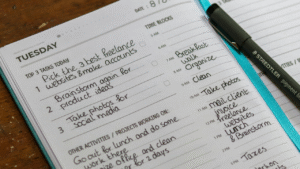 DATE 8/
TUESDAY
TOP 3 TASKS TODAY
1 Pick the 3 best freelance
websites & make accounts
2 Brainstorm again for
product ideas
3 Take photos for
social media
OTHER ACTIVITIES / PROJECTS WORKING ON:
Go out for lunch and do some
work there
office and clean
for 2 days
TIME BLOCKS
Breakfast
Walk
Organize
Clean
Take photos
Mail clients
invoice
Freelance
websites
Lunch
& Brainstorm
Taxes
STAEDTLER